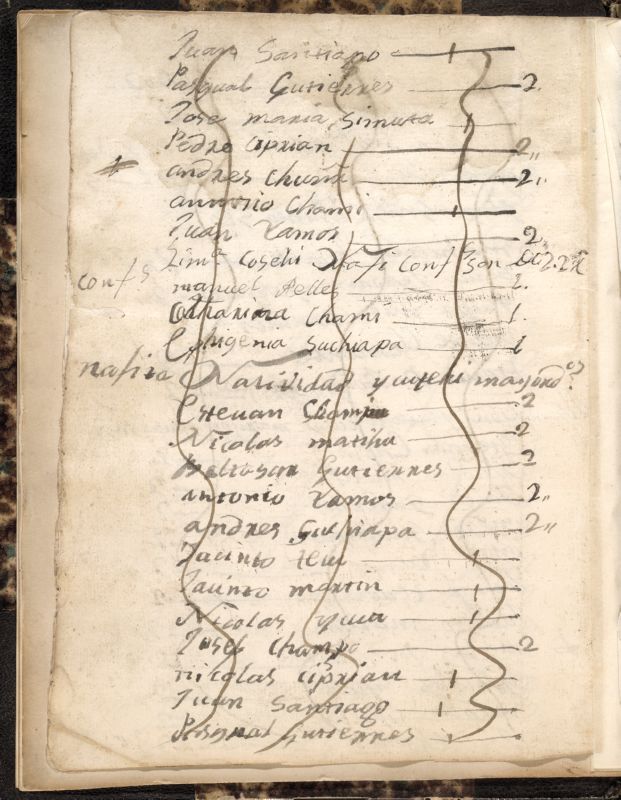 Juan Santiago 1
Pasqual Gutierres 2.
Jose maria Simuta 1
Pedro Ciprian 2,,
andres Chunta 2,,
antonio Chami 1
Juan Ramos 2.
confs
manuel Pelles 2.
Catharina Chami 1.
Ephigenia Suchiapa 1
nasira Natividad
Estevan Champu 2
Nicolas matiha 2
Baltasar Gutierres 2
Antonio Ramos 2,,
andres Suchiapa 2,,
Jacinto 1
Jacinto martin 1
Nicolas 1
Josef Champo 2
nicolas Ciprian 1
Juan Santiago 1
Pasqual Gutierres 1